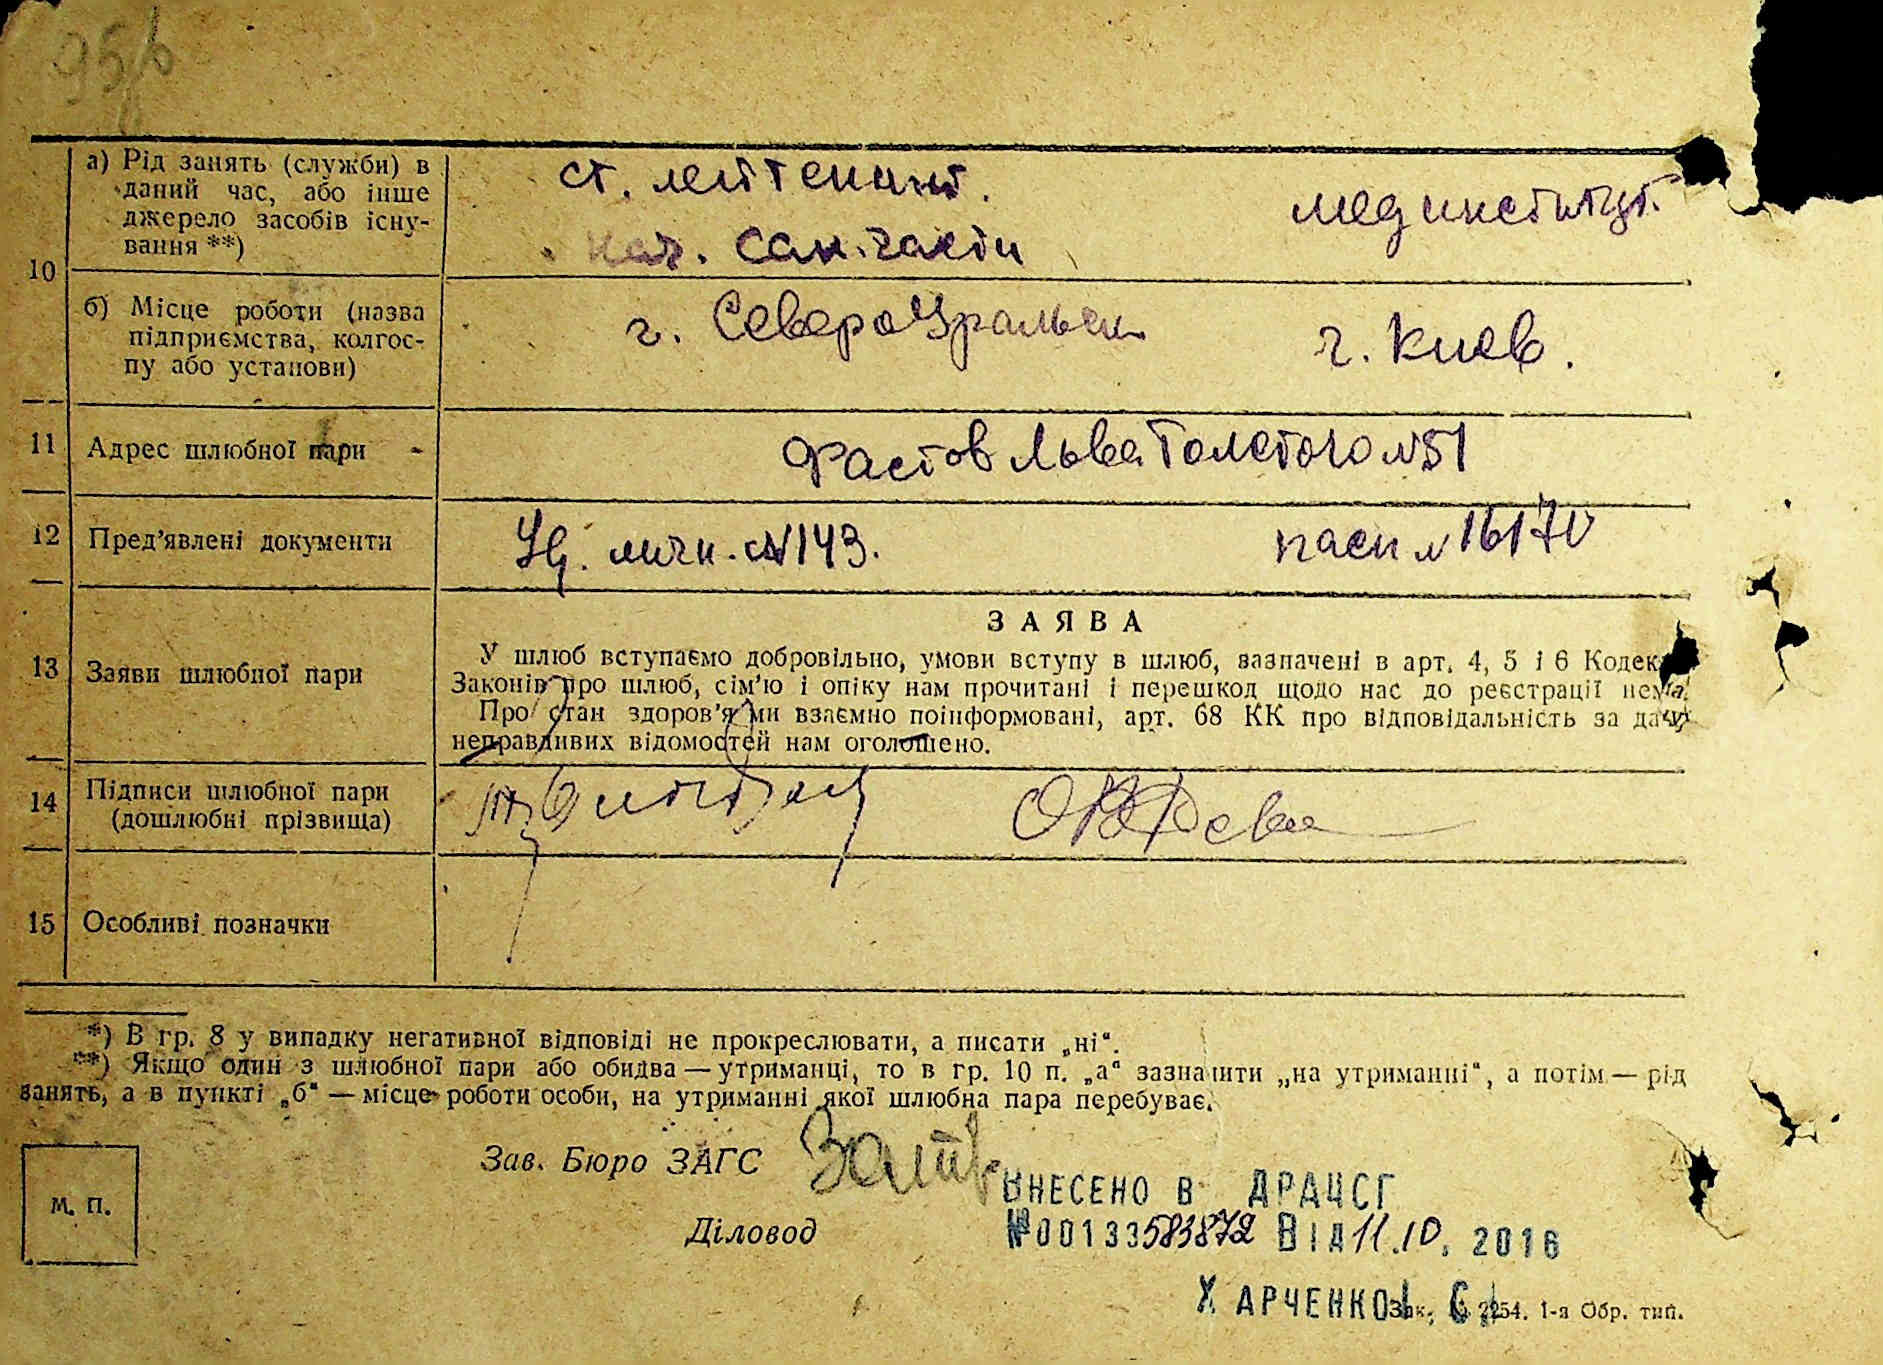 95
а) Рід занять (служби) в
даний час, або інше
джерело засобів існу-
вання **)
ст. лейтенант.
нач. сан. части
мединститут.
10
б) Місце роботи (назва
підприємства, колгос-
пу або установи)
г. СевероУральск
г. Киев.
11 Адрес шлюбної пари
Фастов Льва Толстого №51
12 Пред’явлені документи
Уд. личн. №143.
пасп №
13 Заяви шлюбної пари
ЗАЯВА
У шлюб вступаємо добровільно, умови вступу в шлюб, зазначені в арт. 4, 5 і 6 Кодек
Законів про шлюб, сім’ю і опіку нам прочитані і перешкод щодо нас до реєстрації нема.
Про стан здоров’я ми взаємно поінформовані, арт. 68 КК про відповідальність за дачу
неправдивих відомостей нам оголошено.
14 Підписи шлюбної пари
(дошлюбні прізвища)
15 Особливі позначки
*) В гр. 8 у випадку негативної відповіді не прокреслювати, а писати „ні“.
**) Якщо один з шлюбної пари або обидва — утриманці, то в гр. 10 п. „а“ зазначити „на утриманні“, а потім — рід
занять, а в пункті „б“ — місце роботи особи, на утриманні якої шлюбна пара перебуває.
М. П.
Зав. Бюро ЗАГС
Діловод
ВНЕСЕНО В ДРАЦСГ
№00133583872 ВІД 11.10. 2016
ХАРЧЕНКО І. С.
Зак. 2254. 1-а Обр. тип.